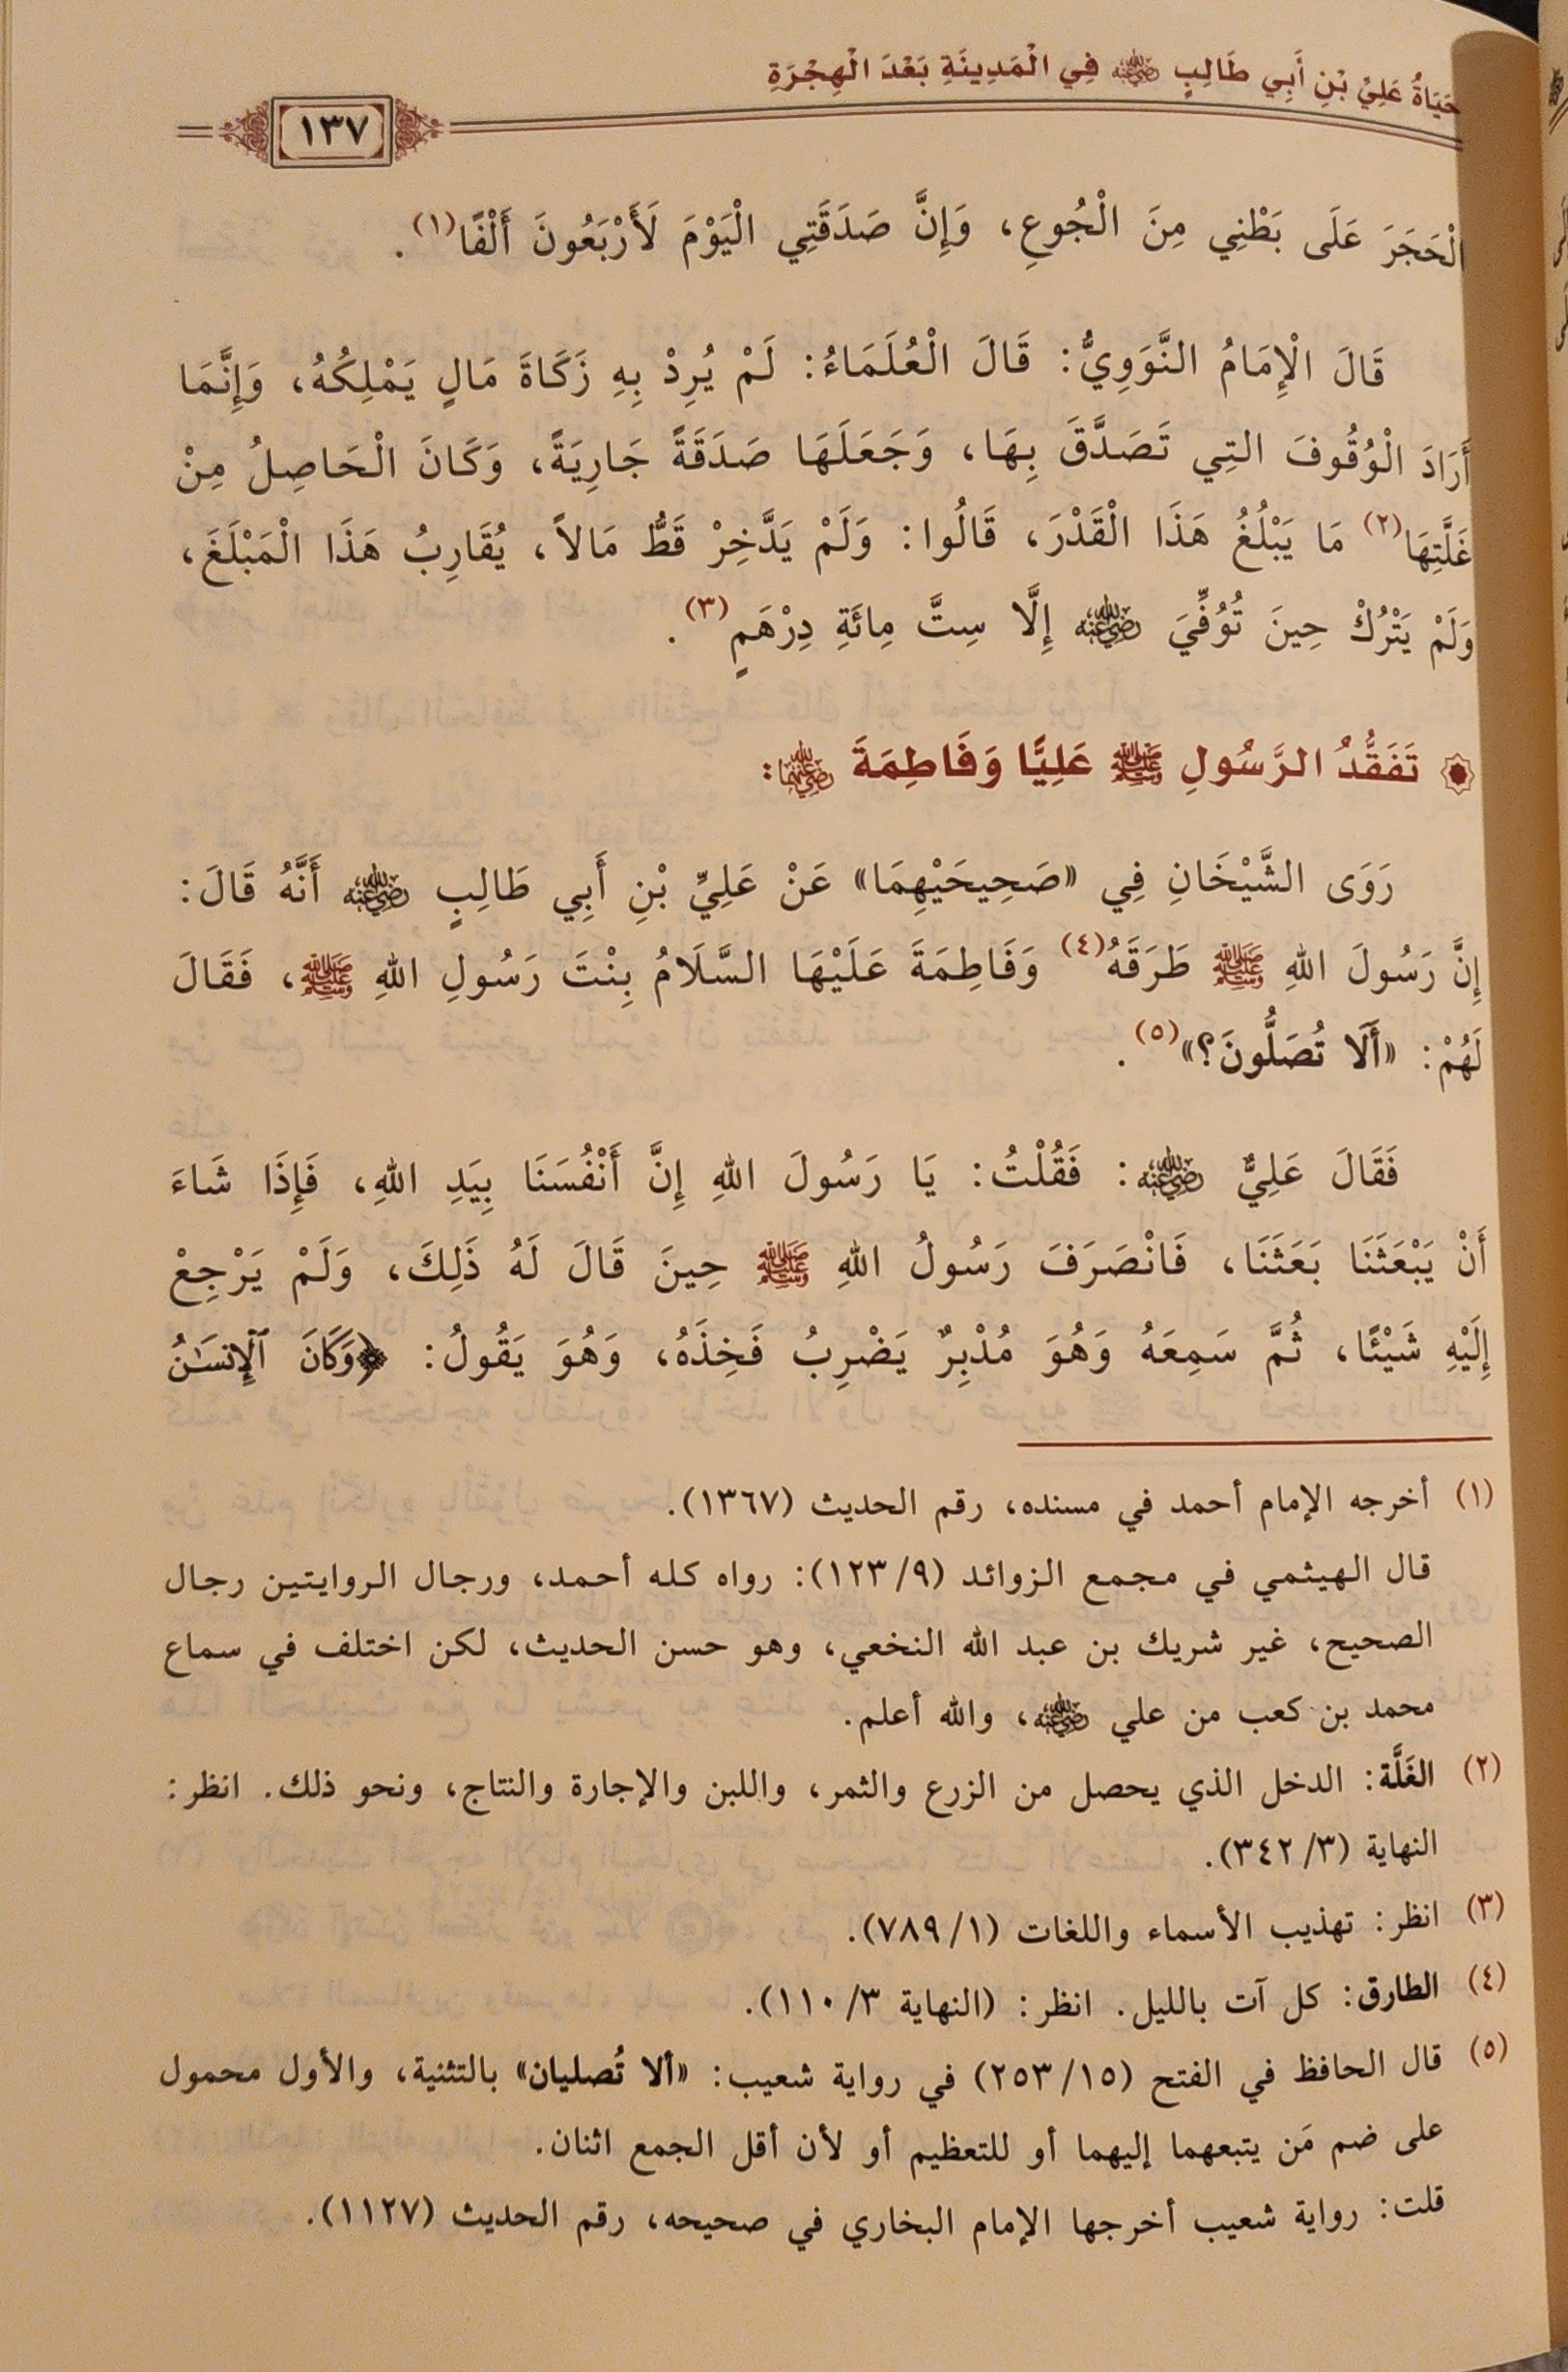 حَيَاةُ عَلِيِّ بْنِ أَبِي طَالِبٍ رضي الله عنه فِي الْمَدِينَةِ بَعْدَ الْهِجْرَةِ
١٣٧
الْحَجَرَ عَلَى بَطْنِي مِنَ الْجُوعِ، وَإِنَّ صَدَقَتِي الْيَوْمَ لَأَرْبَعُونَ أَلْفًا(١).
قَالَ الْإِمَامُ النَّوَوِيُّ: قَالَ الْعُلَمَاءُ: لَمْ يُرِدْ بِهِ زَكَاةَ مَالٍ يَمْلِكُهُ، وَإِنَّمَا
أَرَادَ الْوُقُوفَ التِي تَصَدَّقَ بِهَا، وَجَعَلَهَا صَدَقَةً جَارِيَةً، وَكَانَ الْحَاصِلُ مِنْ
غَلَّتِهَا(٢) مَا يَبْلُغُ هَذَا الْقَدْرَ، قَالُوا: وَلَمْ يَدَّخِرْ قَطُّ مَالاً، يُقَارِبُ هَذَا الْمَبْلَغَ،
وَلَمْ يَتْرُكْ حِينَ تُوُفِّيَ رضي الله عنه إِلَّا سِتَّ مِائَةِ دِرْهَمٍ(٣).
تَفَقُّدُ الرَّسُولِ ﷺ عَلِيًّا وَفَاطِمَةَ رضي الله عنهما:
رَوَى الشَّيْخَانِ فِي «صَحِيحَيْهِمَا» عَنْ عَلِيِّ بْنِ أَبِي طَالِبٍ رضي الله عنه أَنَّهُ قَالَ:
إِنَّ رَسُولَ اللهِ ﷺ طَرَقَهُ(٤) وَفَاطِمَةَ عَلَيْهَا السَّلَامُ بِنْتَ رَسُولِ اللهِ ﷺ، فَقَالَ
لَهُمْ: «أَلَا تُصَلُّونَ؟»(٥).
فَقَالَ عَلِيٌّ رضي الله عنه: فَقُلْتُ: يَا رَسُولَ اللهِ إِنَّ أَنْفُسَنَا بِيَدِ اللهِ، فَإِذَا شَاءَ
أَنْ يَبْعَثَنَا بَعَثَنَا، فَانْصَرَفَ رَسُولُ اللهِ ﷺ حِينَ قَالَ لَهُ ذَلِكَ، وَلَمْ يَرْجِعْ
إِلَيْهِ شَيْئًا، ثُمَّ سَمِعَهُ وَهُوَ مُدْبِرٌ يَضْرِبُ فَخِذَهُ، وَهُوَ يَقُولُ: ﴿وَكَانَ ٱلْإِنسَٰنُ
(١) أخرجه الإمام أحمد في مسنده، رقم الحديث (١٣٦٧).
قال الهيثمي في مجمع الزوائد (٩/ ١٢٣): رواه كله أحمد، ورجال الروايتين رجال
الصحيح، غير شريك بن عبد الله النخعي، وهو حسن الحديث، لكن اختلف في سماع
محمد بن كعب من علي رضي الله عنه، والله أعلم.
(٢) الغَلَّة: الدخل الذي يحصل من الزرع والثمر، واللبن والإجارة والنتاج، ونحو ذلك. انظر:
النهاية (٣/ ٣٤٢).
(٣) انظر: تهذيب الأسماء واللغات (١/ ٧٨٩).
(٤) الطارق: كل آت بالليل. انظر: (النهاية ٣/ ١١٠).
(٥) قال الحافظ في الفتح (١٥/ ٢٥٣) في رواية شعيب: «ألا تُصليان» بالتثنية، والأول محمول
على ضم مَن يتبعهما إليهما أو للتعظيم أو لأن أقل الجمع اثنان.
قلت: رواية شعيب أخرجها الإمام البخاري في صحيحه، رقم الحديث (١١٢٧).